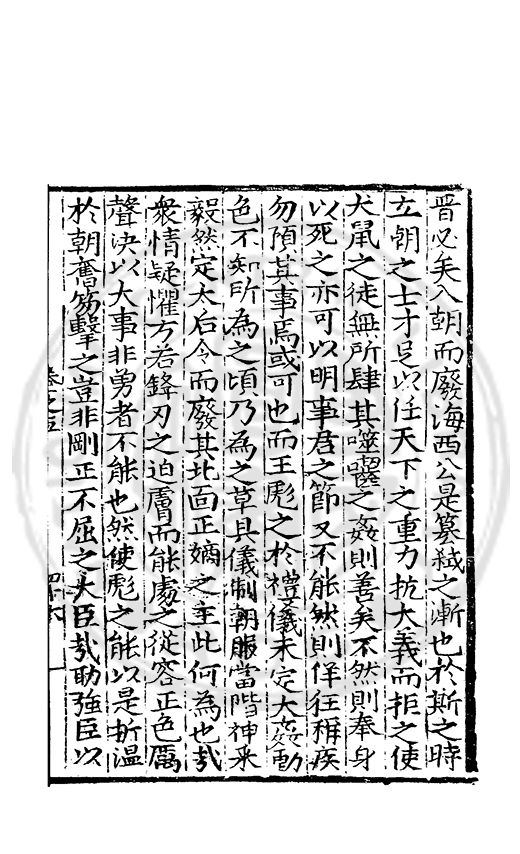 晉必矣入朝而廢海西公是篡弑之漸也於斯之時
立朝之士才足以任天下之重力抗大義而拒之使
犬鼠之徒無所肆其噬齧之姦則善矣不然則奉身
以死之亦可以明事君之節又不能然則佯狂稱疾
勿預其事焉或可也而王彪之於禮儀未定大姦動
色不知所為之頃乃為之草具儀制朝服當階神采
毅然定太后令而廢其北面正嫡之主此何為也㢤
衆情疑懼方若鋒刃之迫膚而能處之從容正色厲
聲決以大事非勇者不能也然使彪之能以是折溫
於朝奮笏擊之豈非剛正不屈之大臣㢤助強臣以
卷之五
四十六